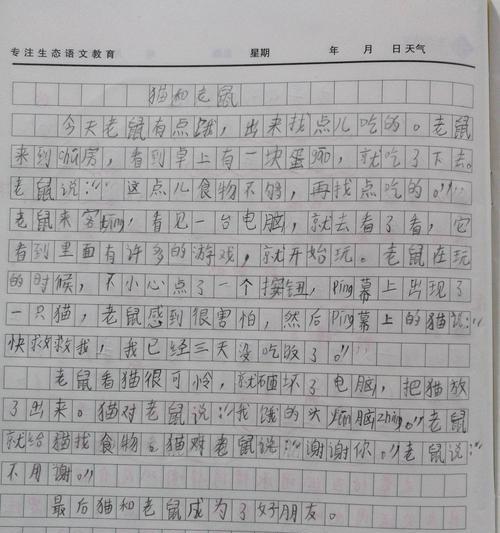 专注生态语文教育 星期 年 月 日 天气
猫和老鼠
今天老鼠有点饿，出来找点儿吃的。老鼠
来到chú房，看到桌上有一块蛋gāo，就吃了下去。
老鼠说："这点儿食物不够，再找点吃的。"
老鼠来客tīng，看见一台电脑，就去看了看，它
看到里面有许多的游戏，就开始玩。老鼠在玩
的时候，不小心点了一个按钮，píng幕上出现了
一只猫，老鼠感到很害怕，然后píng幕上的猫说：
"快救救我，我已经三天没吃饭了。"
老鼠看猫很可怜，就砸坏了电脑，把猫放
了出来。猫对老鼠说："我饿的头 脑zhàng。"老鼠
就给猫找食物。猫对老鼠说："谢谢你。"老鼠说：
"不用谢。"
最后猫和老鼠成为了好朋友。